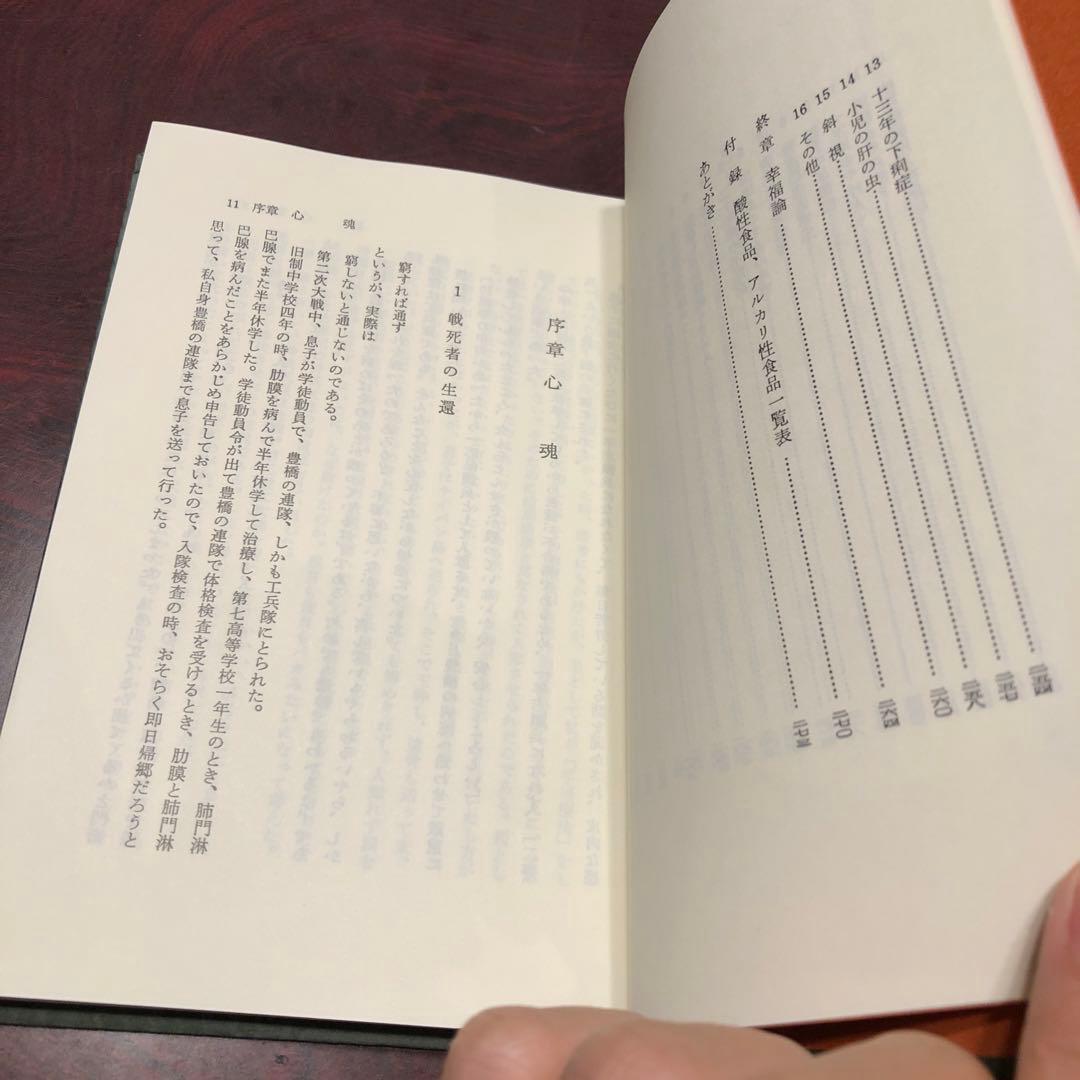 13 十三年の下痢症……二五四
14 小児の肝の虫……二五七
15 斜視……二五八
16 その他……二六〇
終章 幸福論……二六四
付録 酸性食品、アルカリ性食品一覧表……二七〇
あとがき……二七三
序章 心 魂
1 戦死者の生還
窮すれば通ず
というが、実際は
窮しないと通じないのである。
第二次大戦中、息子が学徒動員で、豊橋の連隊、しかも工兵隊にとられた。
旧制中学校四年の時、肋膜を病んで半年休学して治療し、第七高等学校一年生のとき、肺門淋
巴腺でまた半年休学した。学徒動員令が出て豊橋の連隊で体格検査を受けるとき、肋膜と肺門淋
巴腺を病んだことをあらかじめ申告しておいたので、入隊検査の時、おそらく即日帰郷だろうと
思って、私自身豊橋の連隊まで息子を送って行った。
11 序章 心 魂